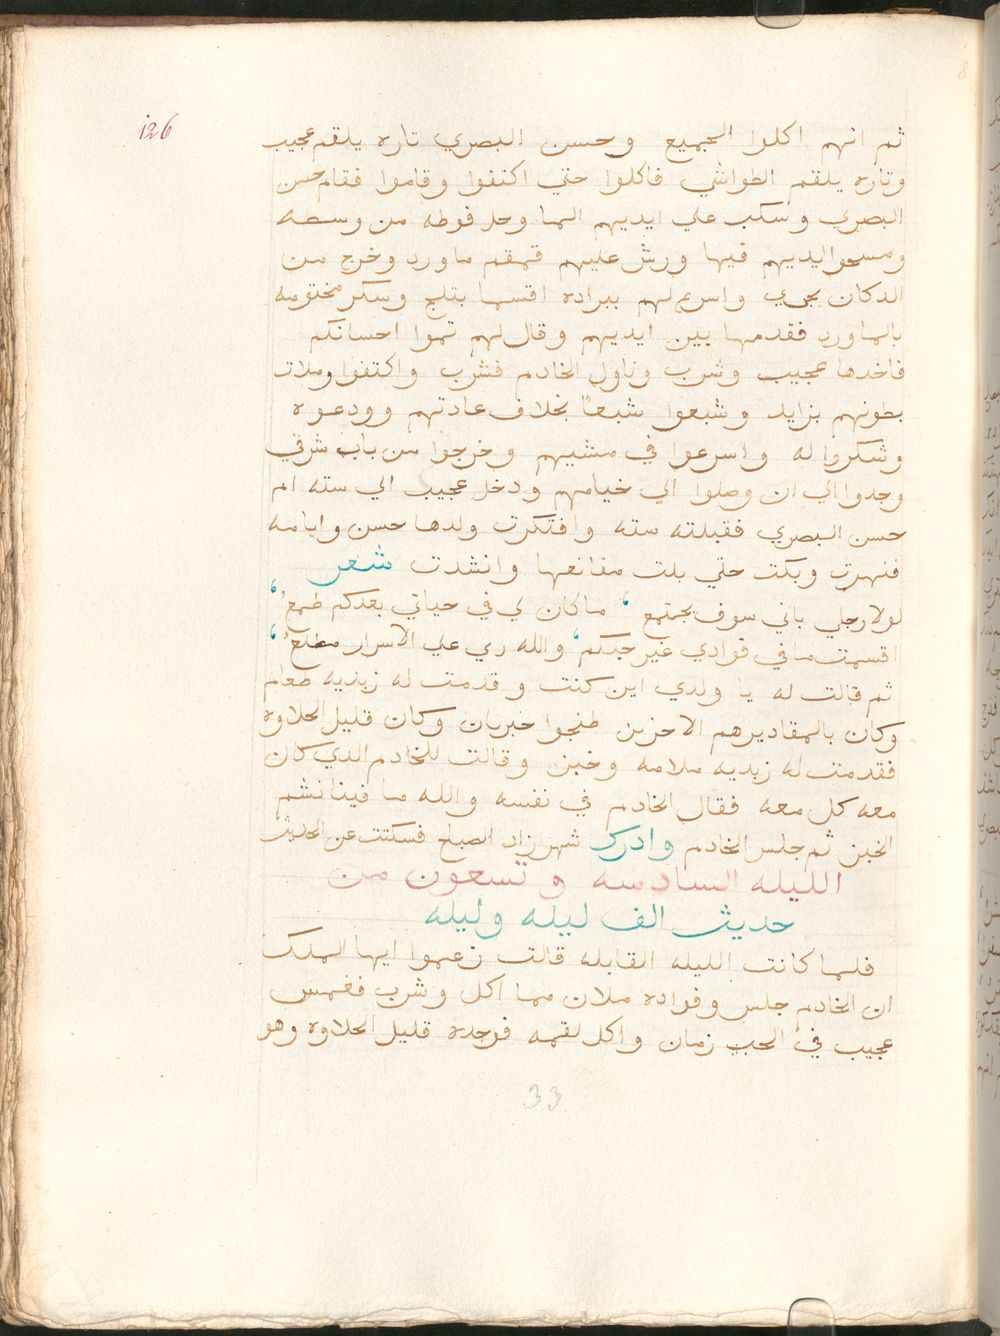 126
ثم انهم اكلوا الجميع وحسن البصري تاره يلقم عجيب
وتاره يلقم الطواشي فاكلوا حتي اكتفوا وقاموا فقام حسن
البصري وسكب علي ايديهم الما وحل فوطه من وسطه
ومسحوا ايديهم فيها ورش عليهم قمقم ماورد وخرج من
الدكان يجري واسرع لهم ببراده اقسما بتلج وسكر مختومه
بالماورد فقدمها بين ايديهم وقال لهم تموا احسانكم
فاخدها عجيب وشرب وناول الخادم فشرب واكتفوا وملات
بطونهم بزايد وشبعوا شبعاً بخلاف عادتهم وودعوه
وشكروا له واسرعوا في مشيهم وخرجوا من باب شرقي
وجدوا الي ان وصلوا الي خيامهم ودخل عجيب الي سته ام
حسن البصري فقبلته سته وافتكرت ولدها حسن وايامه
فنهرت وبكت حتي بلت مقانعها وانشدت شعر
لولا رجاي باني سوف نجتمع ، ماكان لي في حياتي بعدكم طمع ،
اقسمت ما في فوادي غير حبكم ، والله ربي علي الاسرار مطلع ،
ثم قالت له يا ولدي اين كنت وقدمت له زبديه طعام
وكان بالمقادير هم الاخرين طبخوا حبرمان وكان قليل الحلاوه
فقدمت له زبديه ملامه وخبز وقالت للخادم الدي كان
معه كل معه فقال الخادم في نفسه والله ما فينا نشم
الخبز ثم جلس الخادم وادرك شهرازاد الصباح فسكتت عن الحديث
الليله السادسه وتسعون من
حديث الف ليله وليله
فلما كانت الليله القابله قالت زعموا ايها الملك
ان الخادم جلس وفواده ملان مما اكل وشرب فغمس
عجيب في الحب زمان واكل لقمه فوجده قليل الحلاوه وهو
33